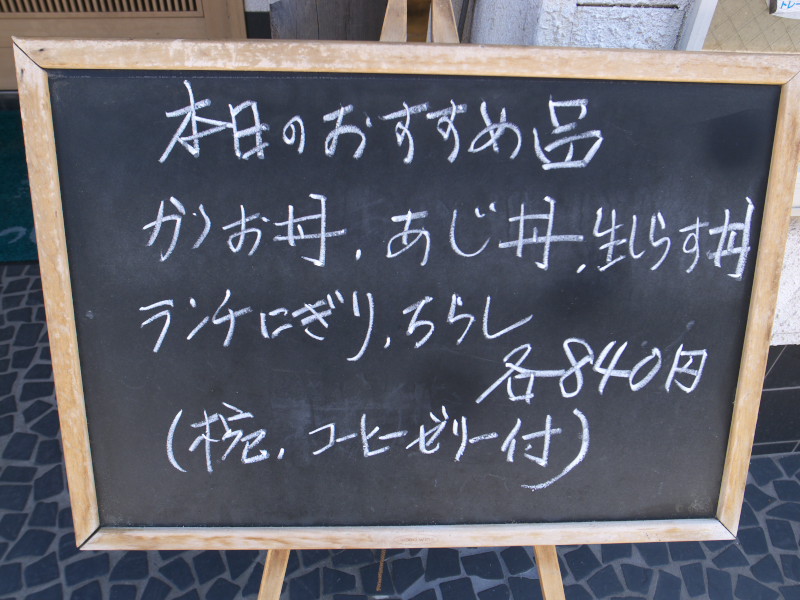 本日のおすすめ品
かつお丼、あじ丼、生しらす丼
ランチにぎり、ちらし
各840円
(椀、コーヒーゼリー付)